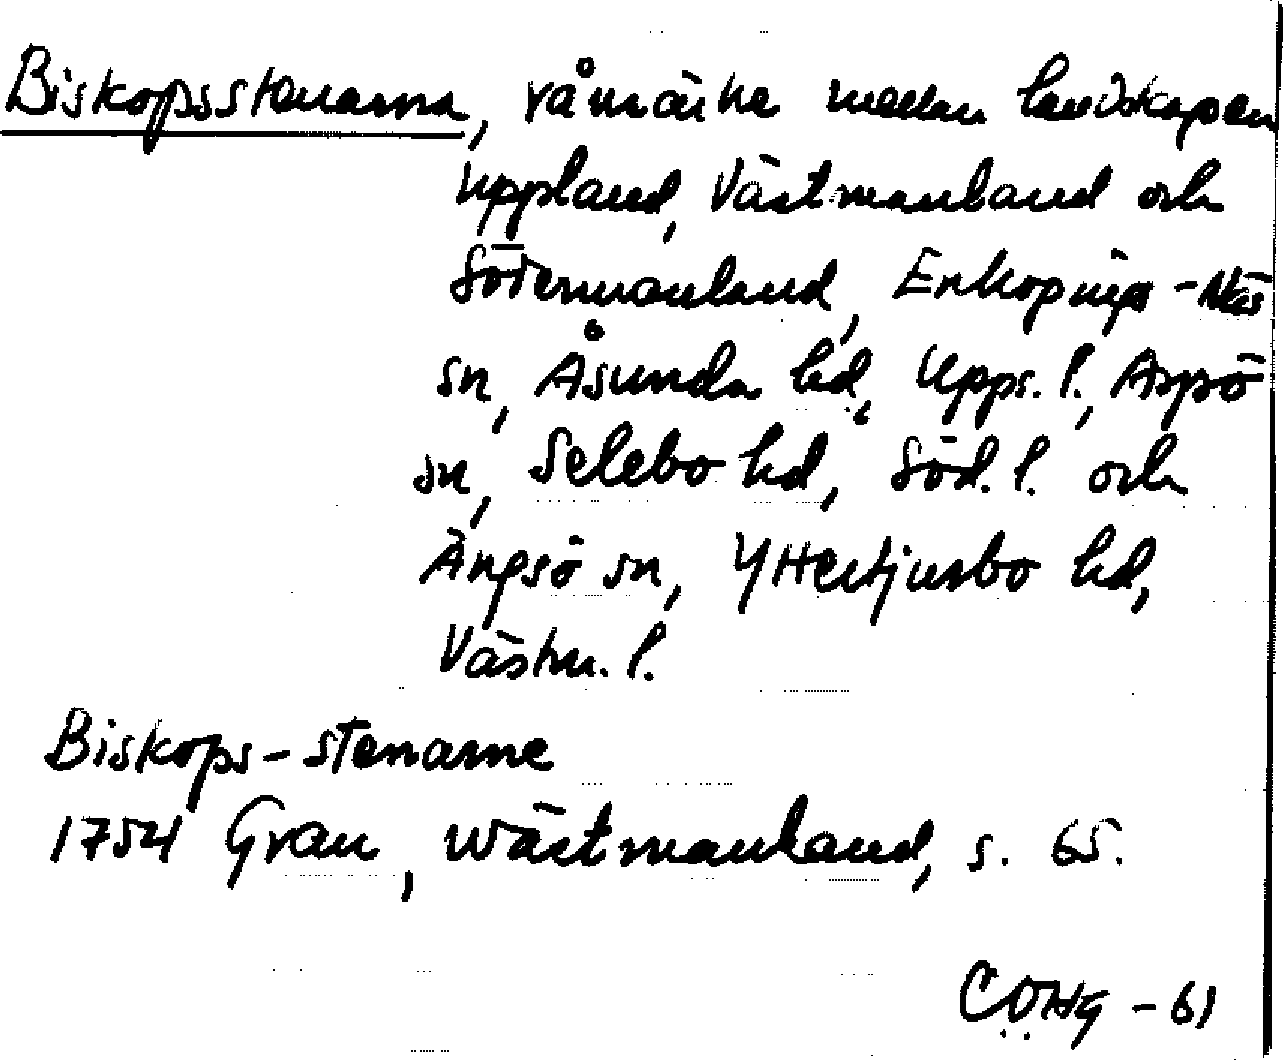 Biskopsstenarna, råmärke mellan landskapen
Uppland, Västmanland och
Södermanland, Enköpings-Näs
sn, Åsunda hd, Upps. l., Aspö
sn, Selebo hd, Söd. l. och
Ängsö sn, Yttertjurbo hd,
Västm. l.
Biskops-stenarne
1754 Grau, Wästmanland, s. 65.
CÖHg - 61